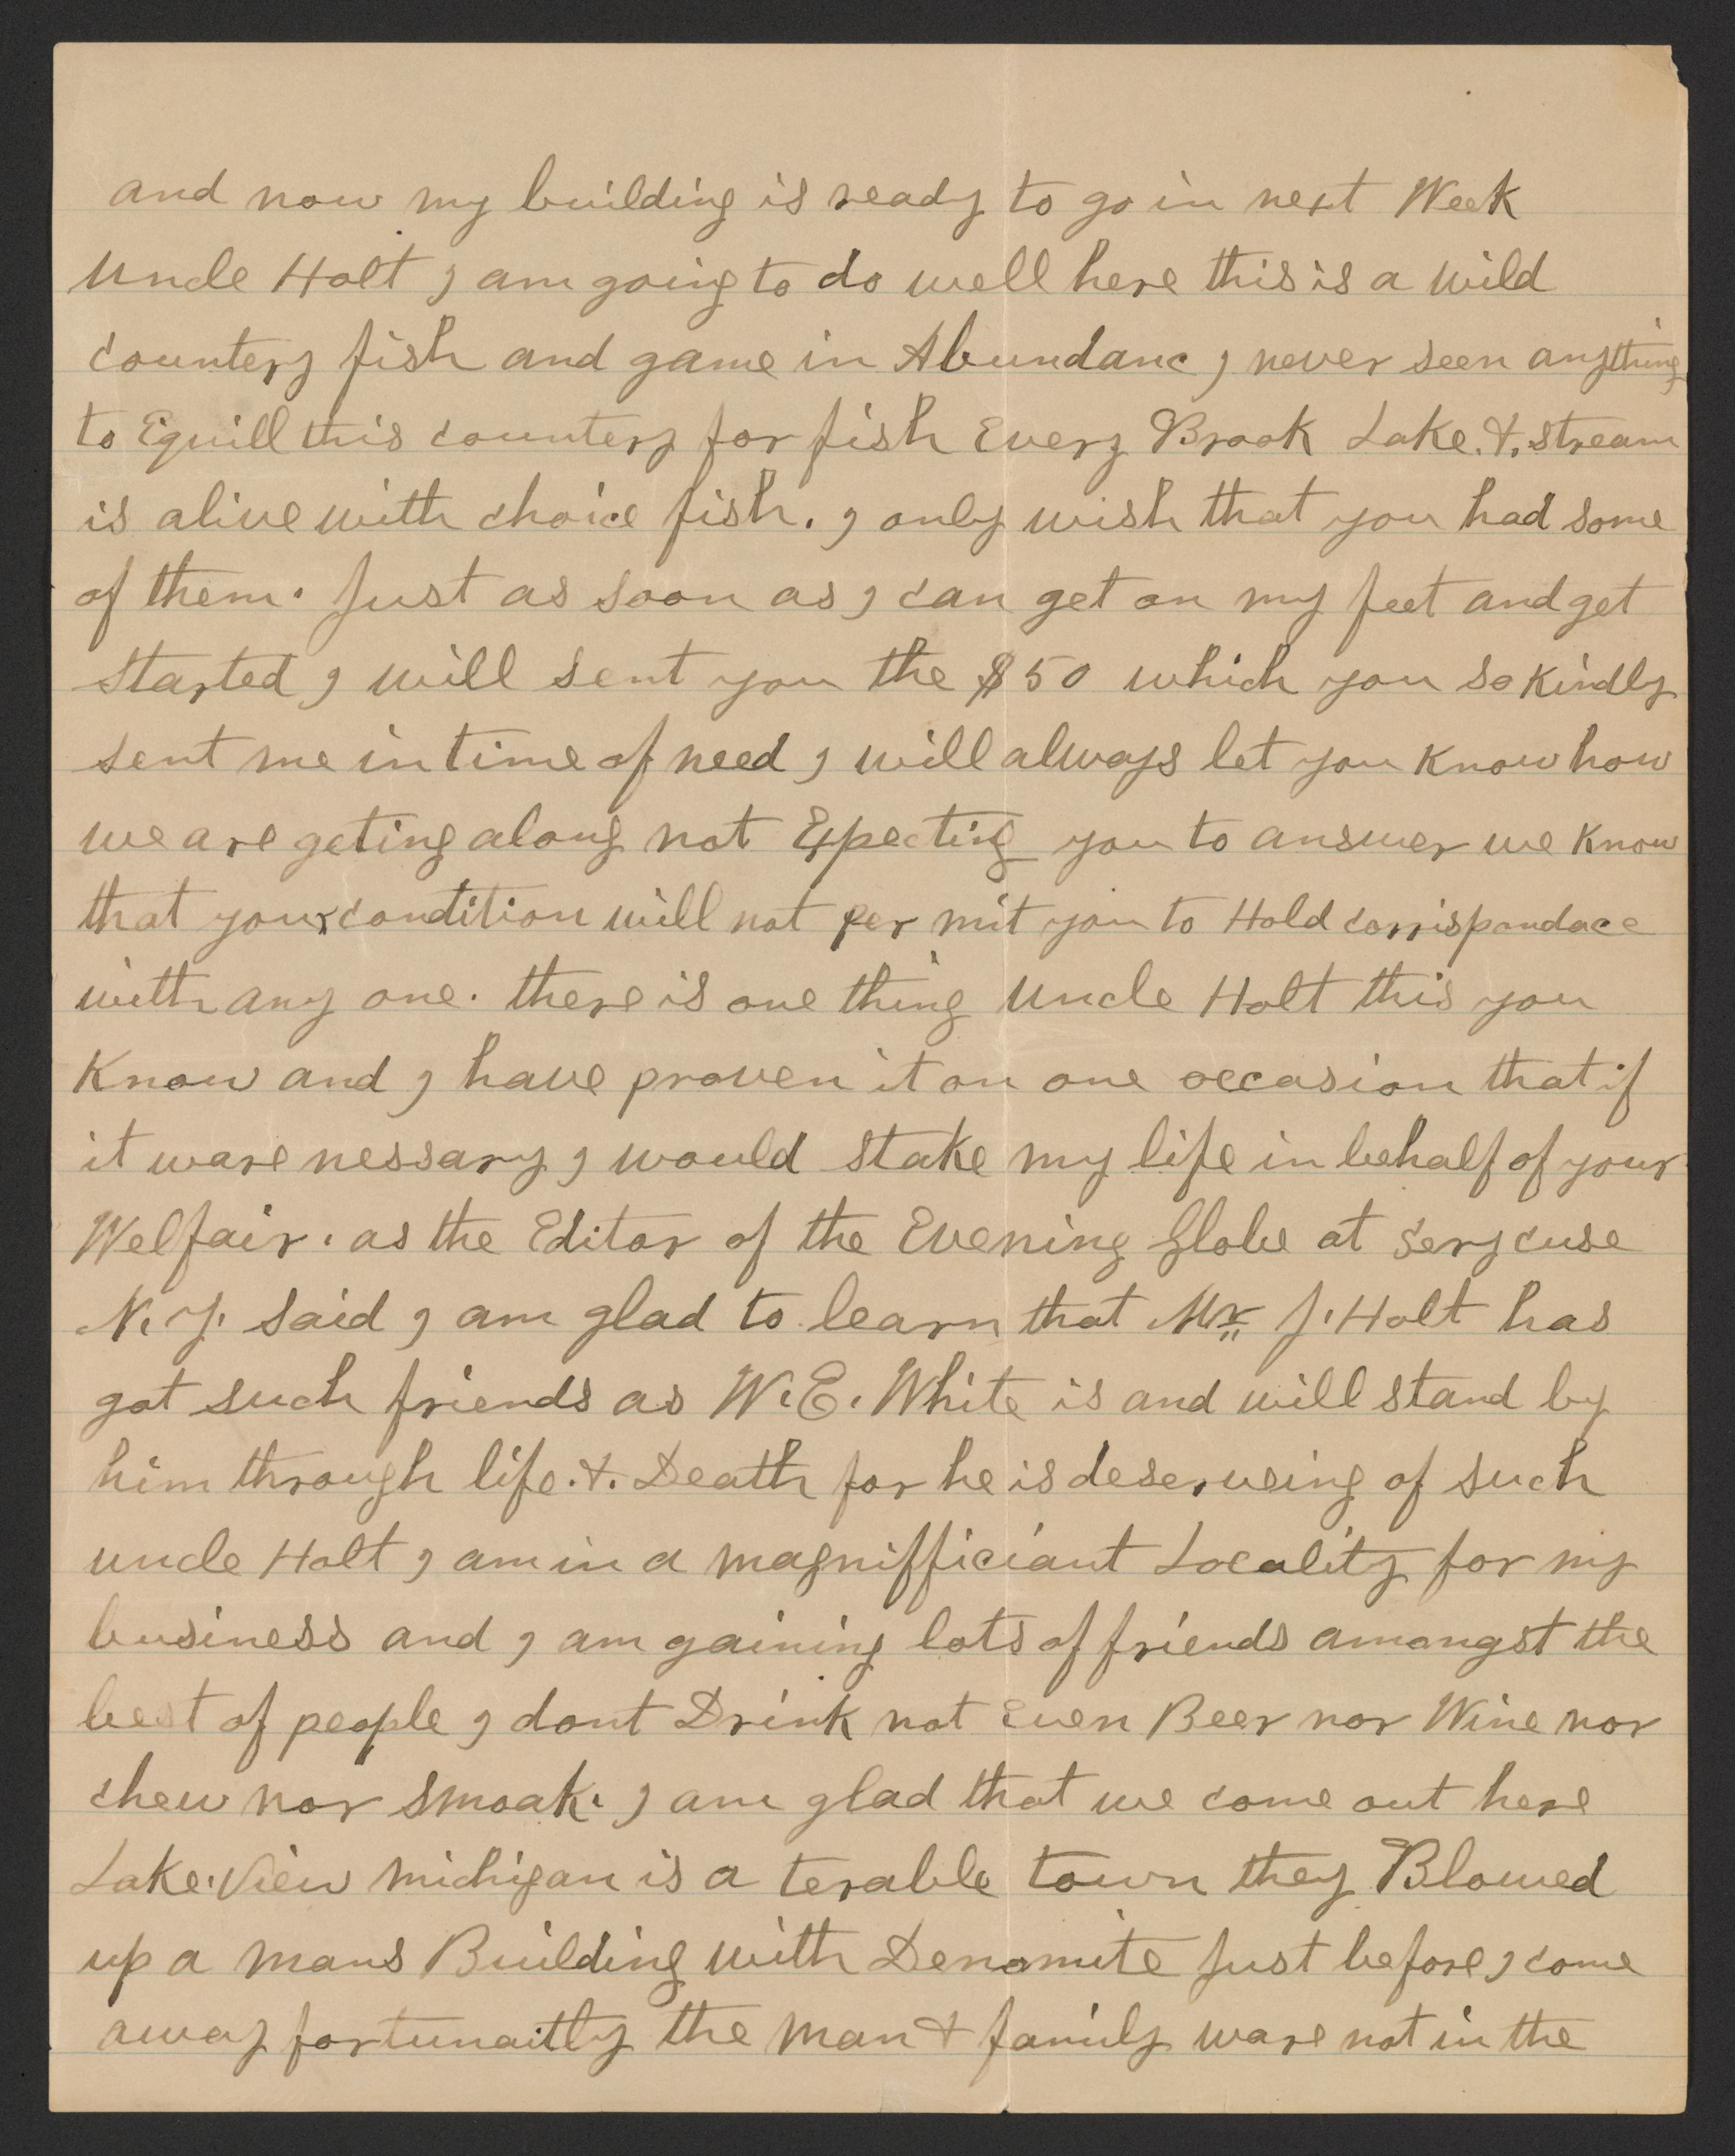 and now my building is ready to go in next Week
Uncle Holt I am going to do well here this is a wild
countery fish and game in Abundanc I never seen anything
to Equill this countery for fish Every Brook Lake. &. stream
is alive with choice fish. I only wish that you had some
of them. Just as soon as I can get on my feet and get
started I will sent you the $50 which you so kindly
sent me in time of need I will always let you know how
we are geting along not Expecting you to answer we know
that your condition will not per mit you to Hold corrispondace
with any one. there is one thing Uncle Holt this you
Know and I have proven it on one occasion that if
it ware nessary I would stake my life in behalf of your
Welfair. as the Editor of the Evening Globe at Serycuse
N.Y. said I am glad to learn that Mr J. Holt has
got such friends as W. E. White is and will stand by
him through life. &. Death for he is deserveing of such
uncle Holt I am in a magnifficiant Locality for my
business and I am gaining lots of friends amongst the
best of people I dont Drink not Even Beer nor Wine nor
chew nor smoak. I am glad that we come out here
Lake. View michigan is a terable town they Blowed
up a mans Building with Denomite Just before I come
away fortunaitly the man & family ware not in the